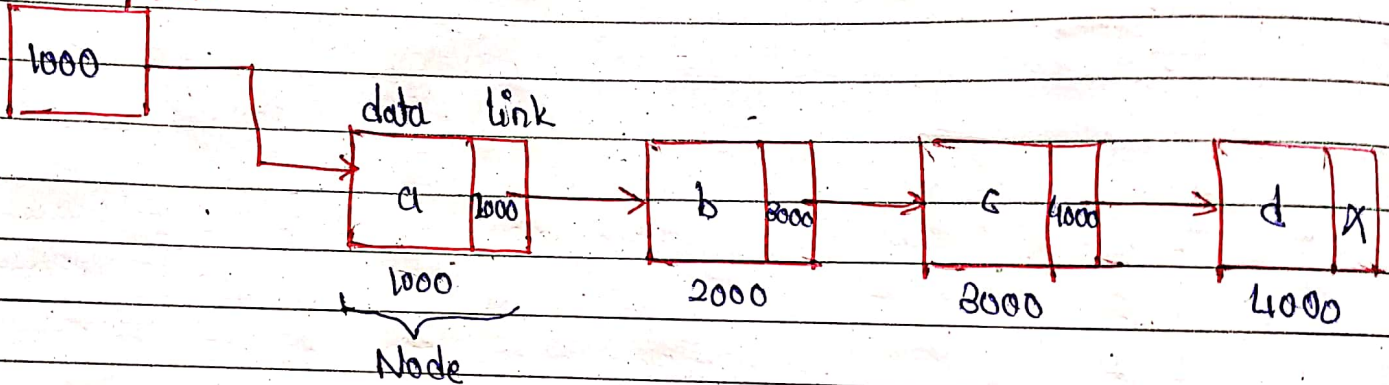 1000
data link
a 2000 b 3000 c 4000 d X
1000 2000 3000 4000
Node